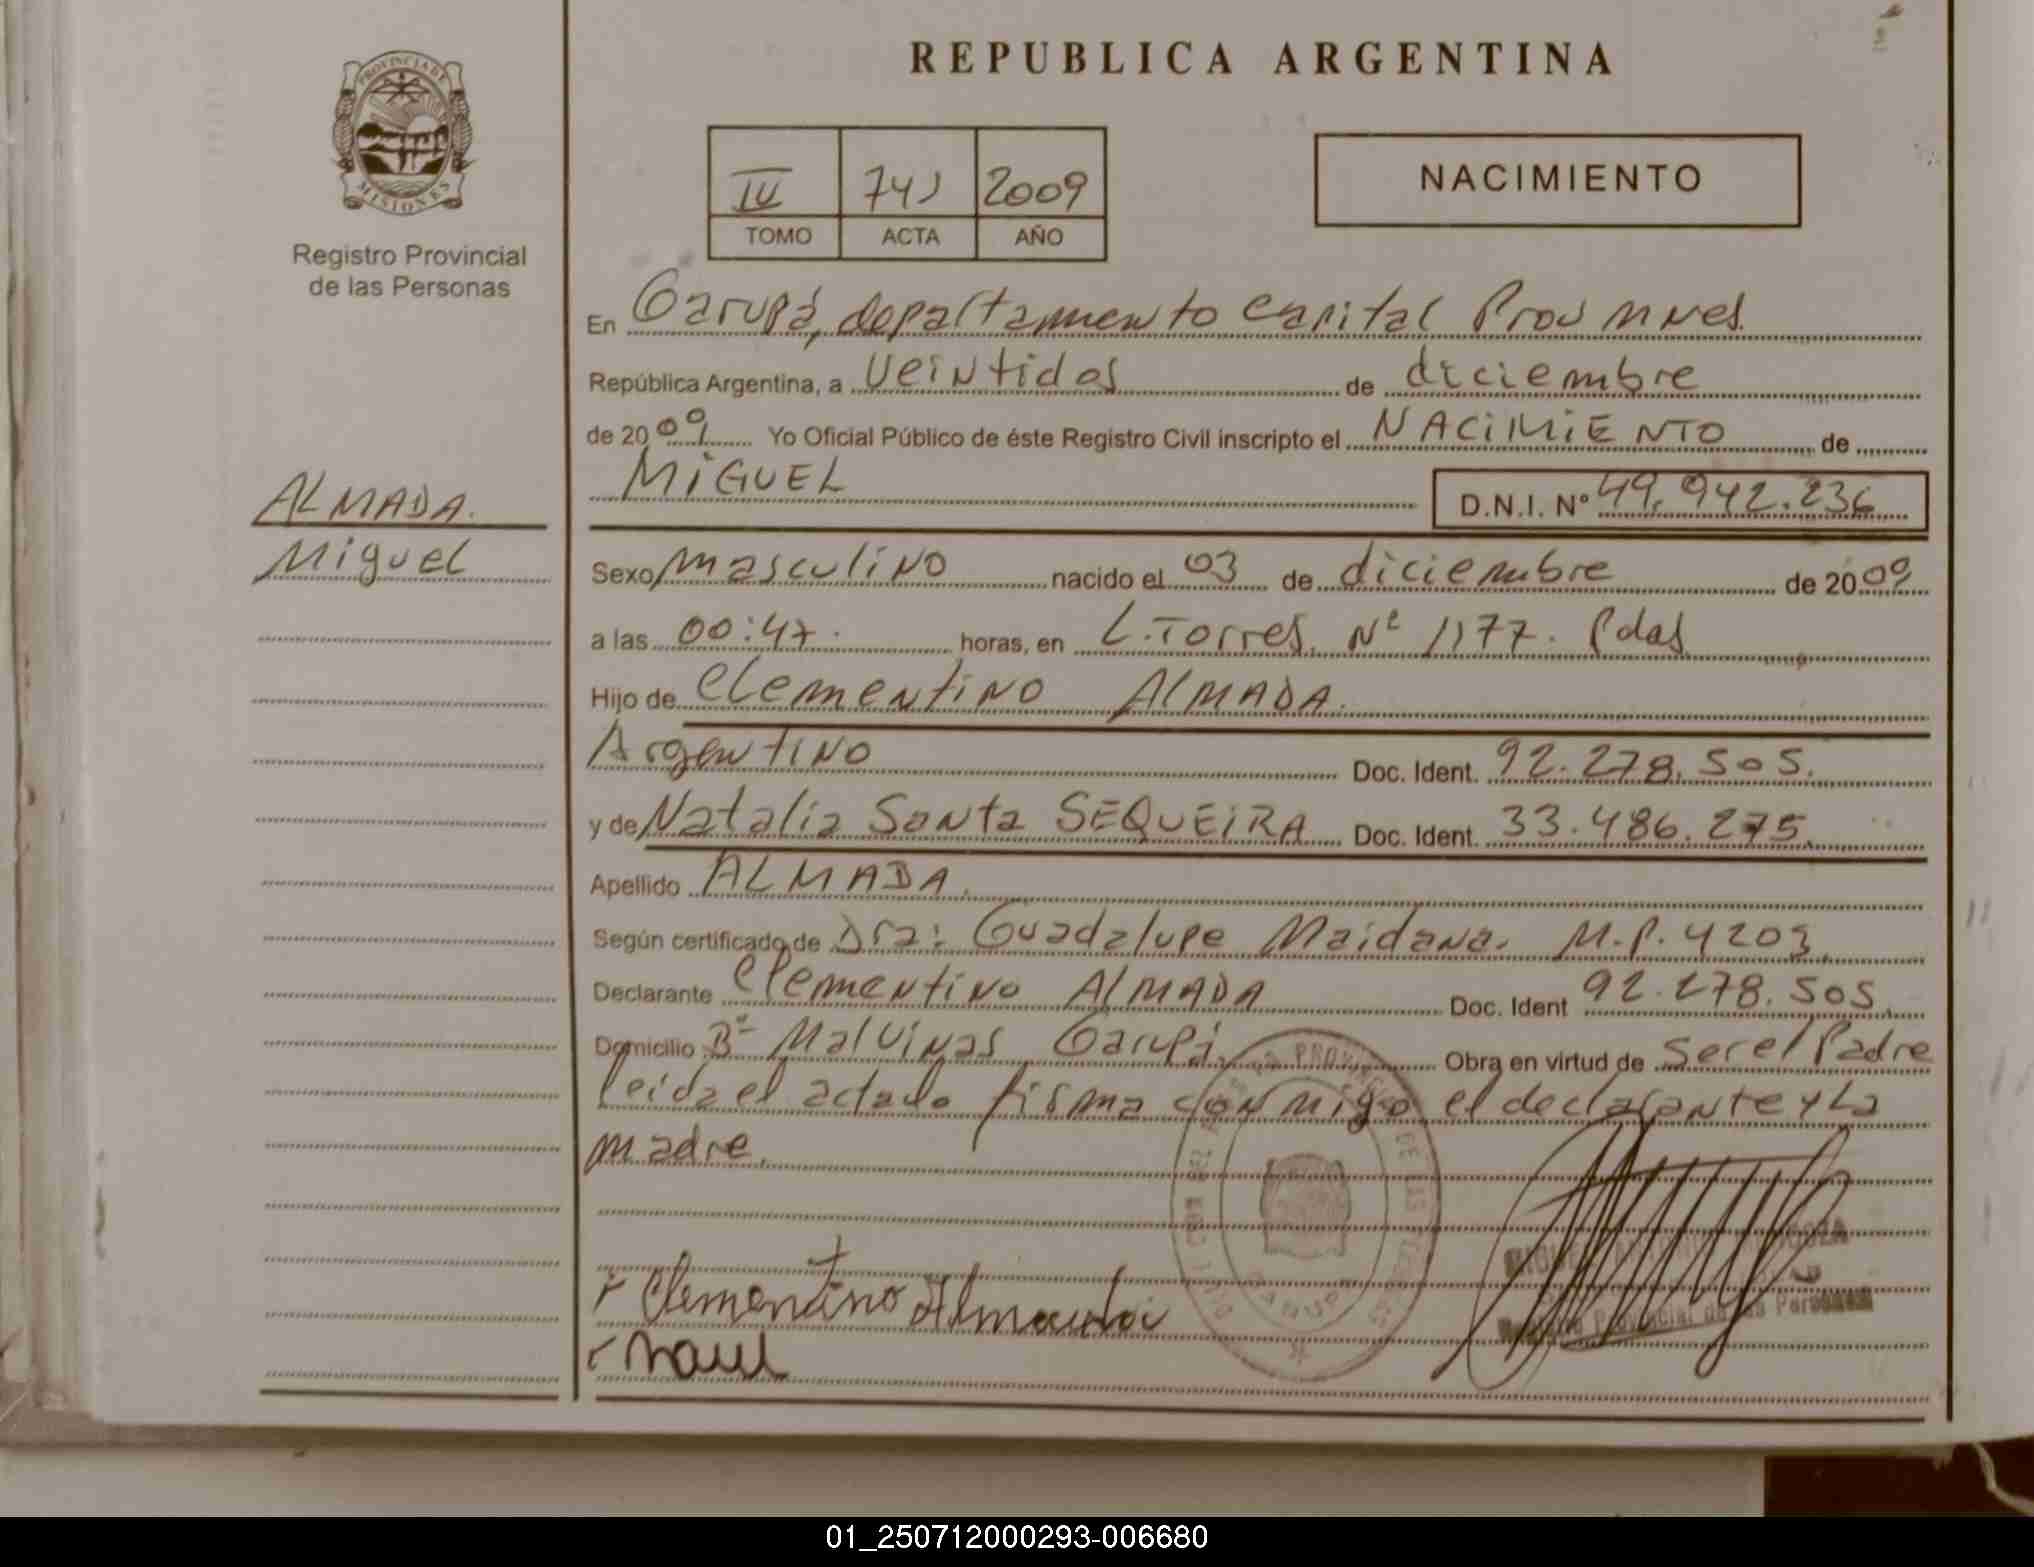 PROVINCIA DE
MISIONES
Registro Provincial
de las Personas
ALMADA.
Miguel
REPUBLICA ARGENTINA
IV 741 2009
TOMO ACTA AÑO
NACIMIENTO
En Garupá, departamento capital Prov Mnes.
República Argentina, a veintidos de diciembre
de 2009 Yo Oficial Público de éste Registro Civil inscripto el NACIMIENTO de
MIGUEL D.N.I. Nº 49.942.236
Sexo masculino nacido el 03 de diciembre de 2009
a las 00:47. horas, en L. Torres Nº 1177. Pdas
Hijo de Clementino ALMADA.
Argentino Doc. Ident. 92.278.505.
y de Natalia Santa SEQUEIRA Doc. Ident. 33.486.275.
Apellido ALMADA.
Según certificado de Dra: Guadalupe Maidana. M.P. 4203.
Declarante Clementino ALMADA Doc. Ident 92.278.505.
Domicilio Bº Malvinas Garupá. Obra en virtud de ser el Padre
leida el acta lo firma conmigo el declarante y La
madre.
Clementino Almada
Registro Provincial de las Personas
01_250712000293-006680